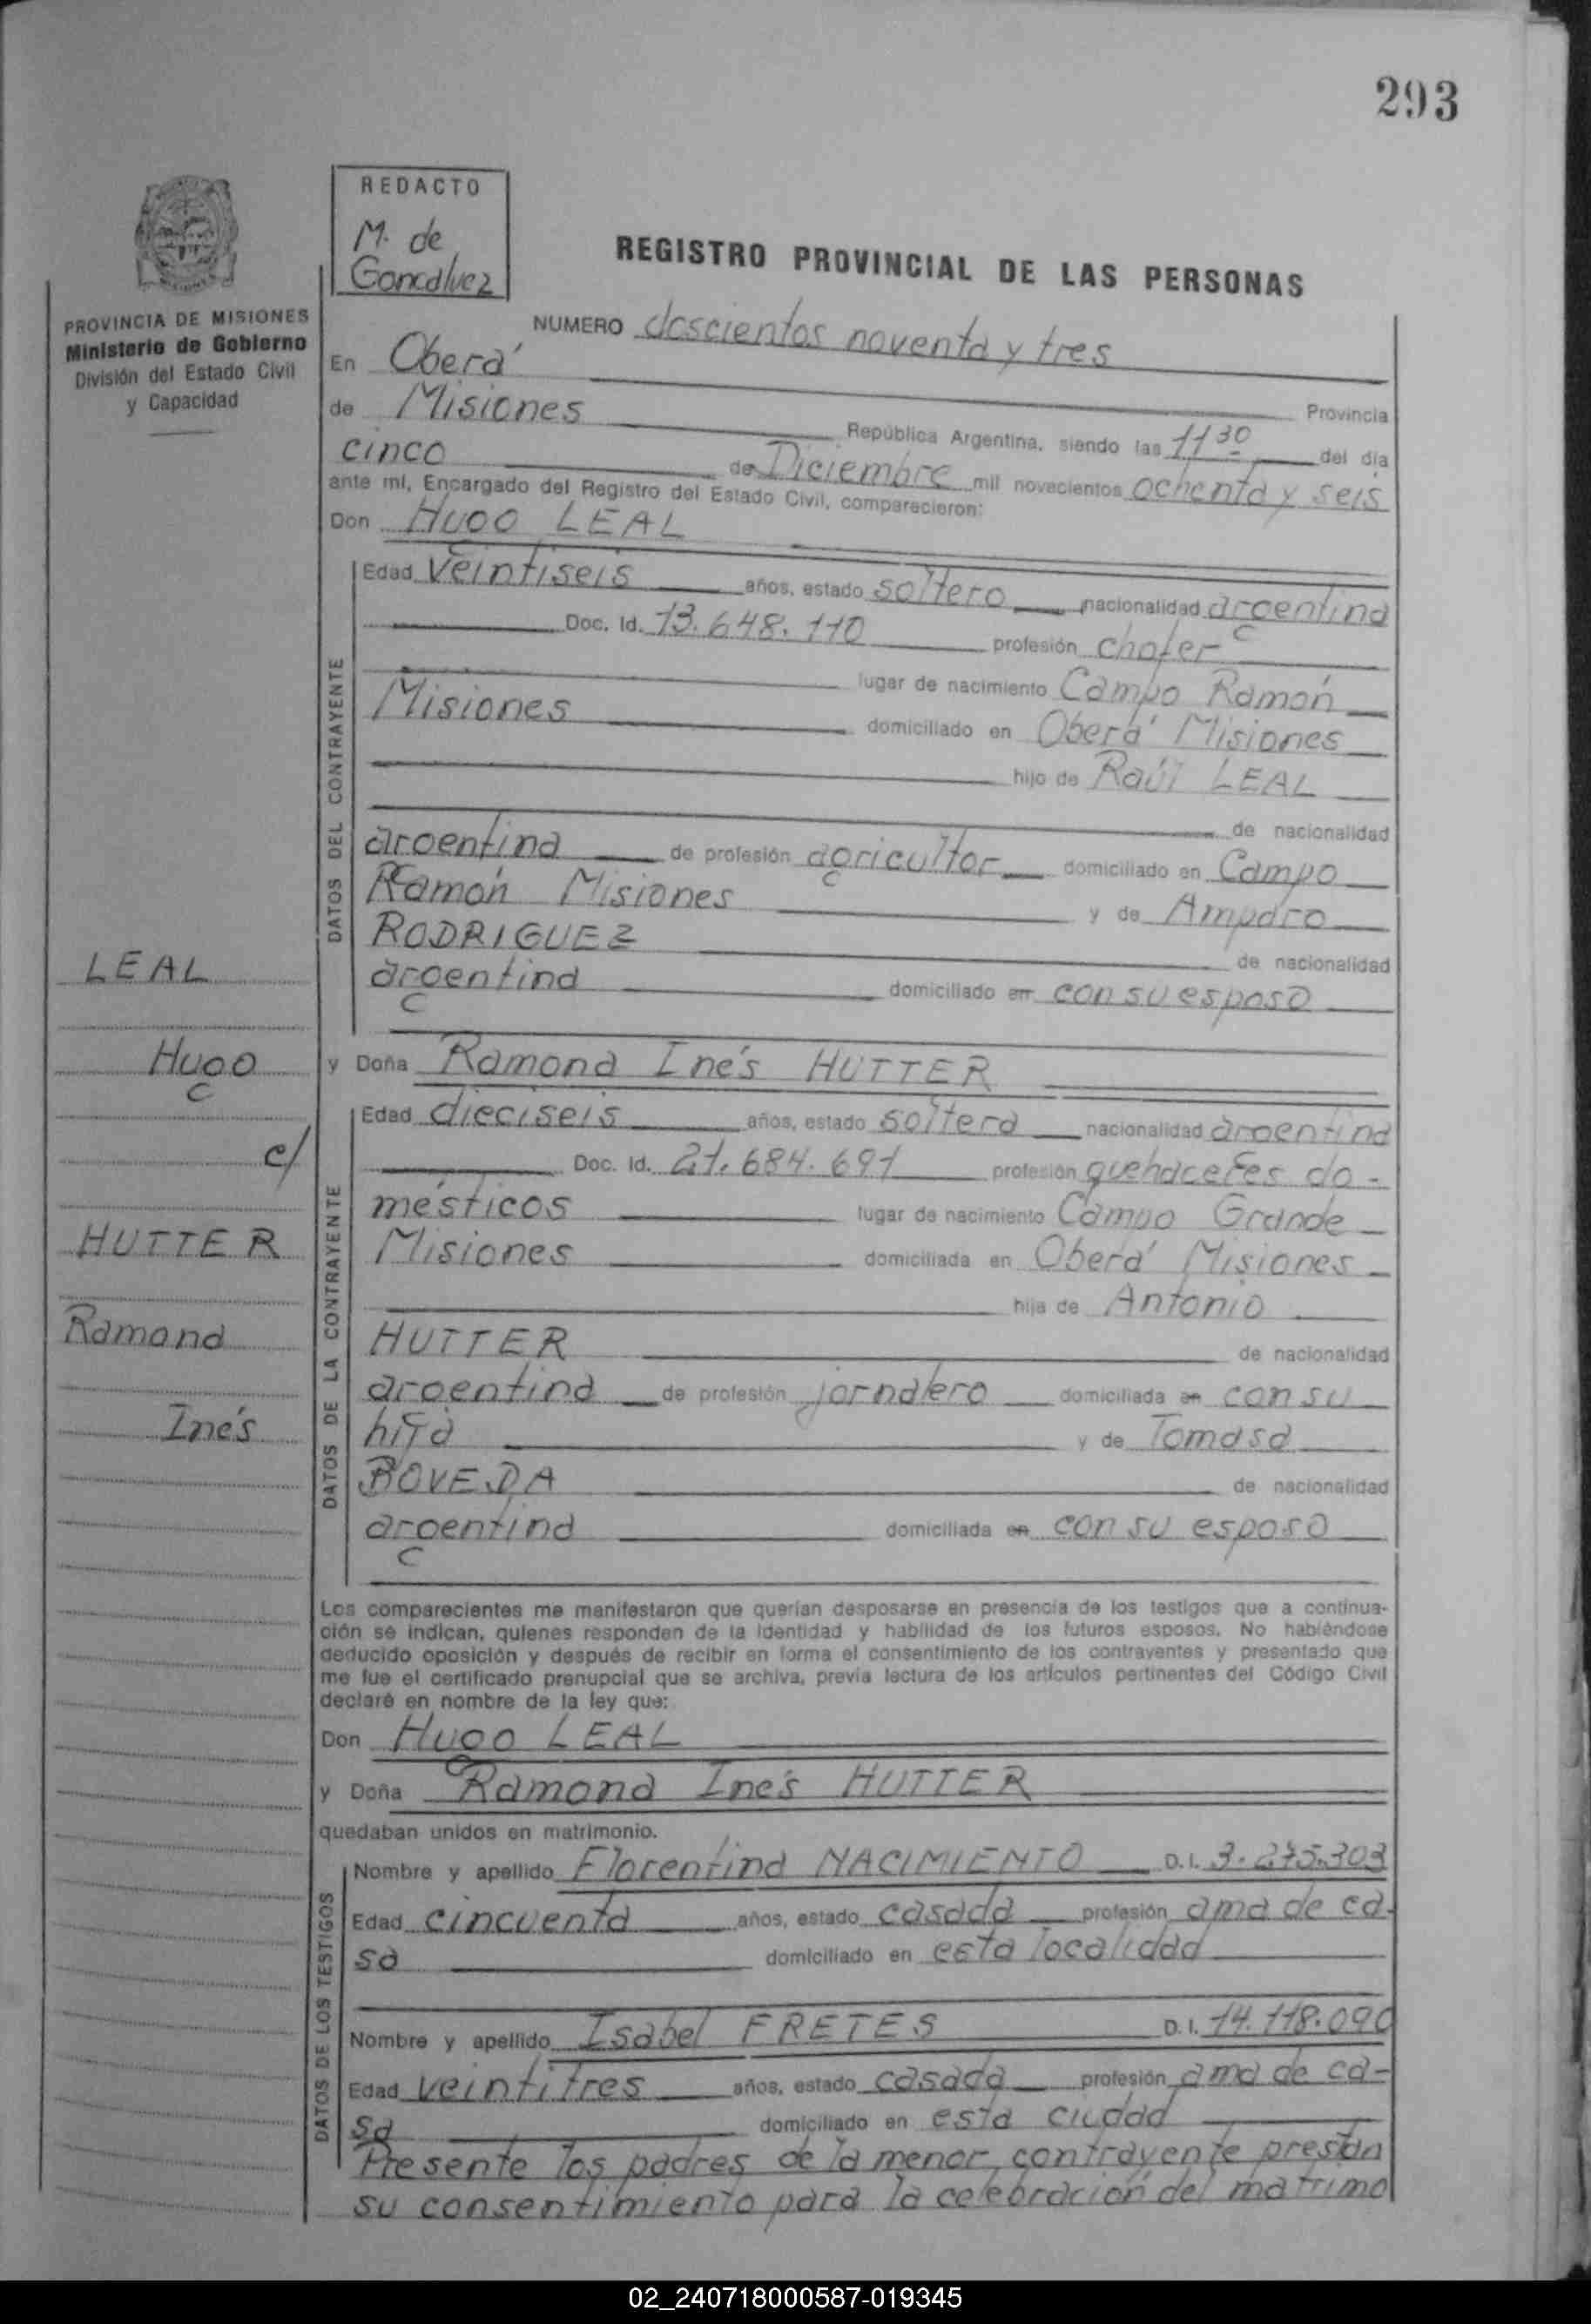 293
REDACTO
M. de
Goncalvez
REGISTRO PROVINCIAL DE LAS PERSONAS
PROVINCIA DE MISIONES
Ministerio de Gobierno
División del Estado Civil
y Capacidad
NUMERO doscientos noventa y tres
En Oberá
de Misiones Provincia
República Argentina, siendo las 11 30 del día
cinco de Diciembre mil novecientos ochenta y seis
ante mí, Encargado del Registro del Estado Civil, comparecieron:
Don Hugo LEAL
DATOS DEL CONTRAYENTE
Edad veintiseis años, estado soltero nacionalidad argentina
Doc. Id. 13.648.110 profesión chofer
lugar de nacimiento Campo Ramón
Misiones domiciliado en Oberá Misiones
hijo de Raúl LEAL
de nacionalidad
argentina de profesión agricultor domiciliado en Campo
Ramón Misiones y de Amparo
RODRIGUEZ de nacionalidad
argentina domiciliado en con su esposo
LEAL
Hugo
c/
HUTTER
Ramona
Inés
y Doña Ramona Inés HUTTER
DATOS DE LA CONTRAYENTE
Edad dieciseis años, estado soltera nacionalidad argentina
Doc. Id. 21.684.691 profesión quehaceres do-
mésticos lugar de nacimiento Campo Grande
Misiones domiciliada en Oberá Misiones
hija de Antonio
HUTTER de nacionalidad
argentina de profesión jornalero domiciliada en con su
hija y de Tomasa
BOVEDA de nacionalidad
argentina domiciliada en con su esposo
Los comparecientes me manifestaron que querían desposarse en presencia de los testigos que a continua-
ción se indican, quienes responden de la identidad y habilidad de los futuros esposos. No habiéndose
deducido oposición y después de recibir en forma el consentimiento de los contrayentes y presentado que
me fue el certificado prenupcial que se archiva, previa lectura de los artículos pertinentes del Código Civil
declaré en nombre de la ley que:
Don Hugo LEAL
y Doña Ramona Inés HUTTER
quedaban unidos en matrimonio.
DATOS DE LOS TESTIGOS
Nombre y apellido Florentina NACIMIENTO D.I. 3.275.303
Edad cincuenta años, estado casada profesión ama de ca-
sa domiciliado en esta localidad
Nombre y apellido Isabel FRETES D.I. 14.118.090
Edad veintitres años, estado casada profesión ama de ca-
sa domiciliado en esta ciudad
Presente los padres de la menor contrayente prestan
su consentimiento para la celebración del matrimo
02_240718000587-019345